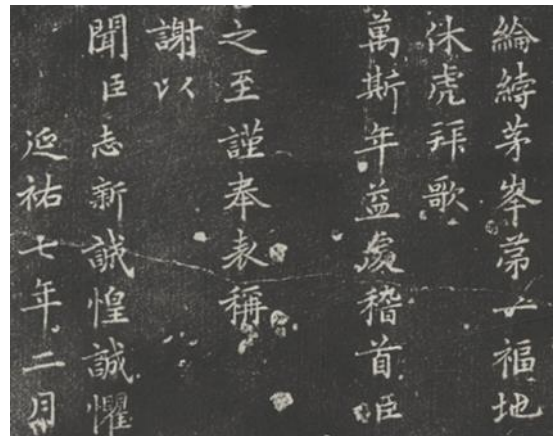 綸綍茅峯第一福地
休虎拜歌
萬斯年益虔稽首臣
之至謹奉表稱
謝以
聞臣志新誠惶誠懼
延祐七年二月